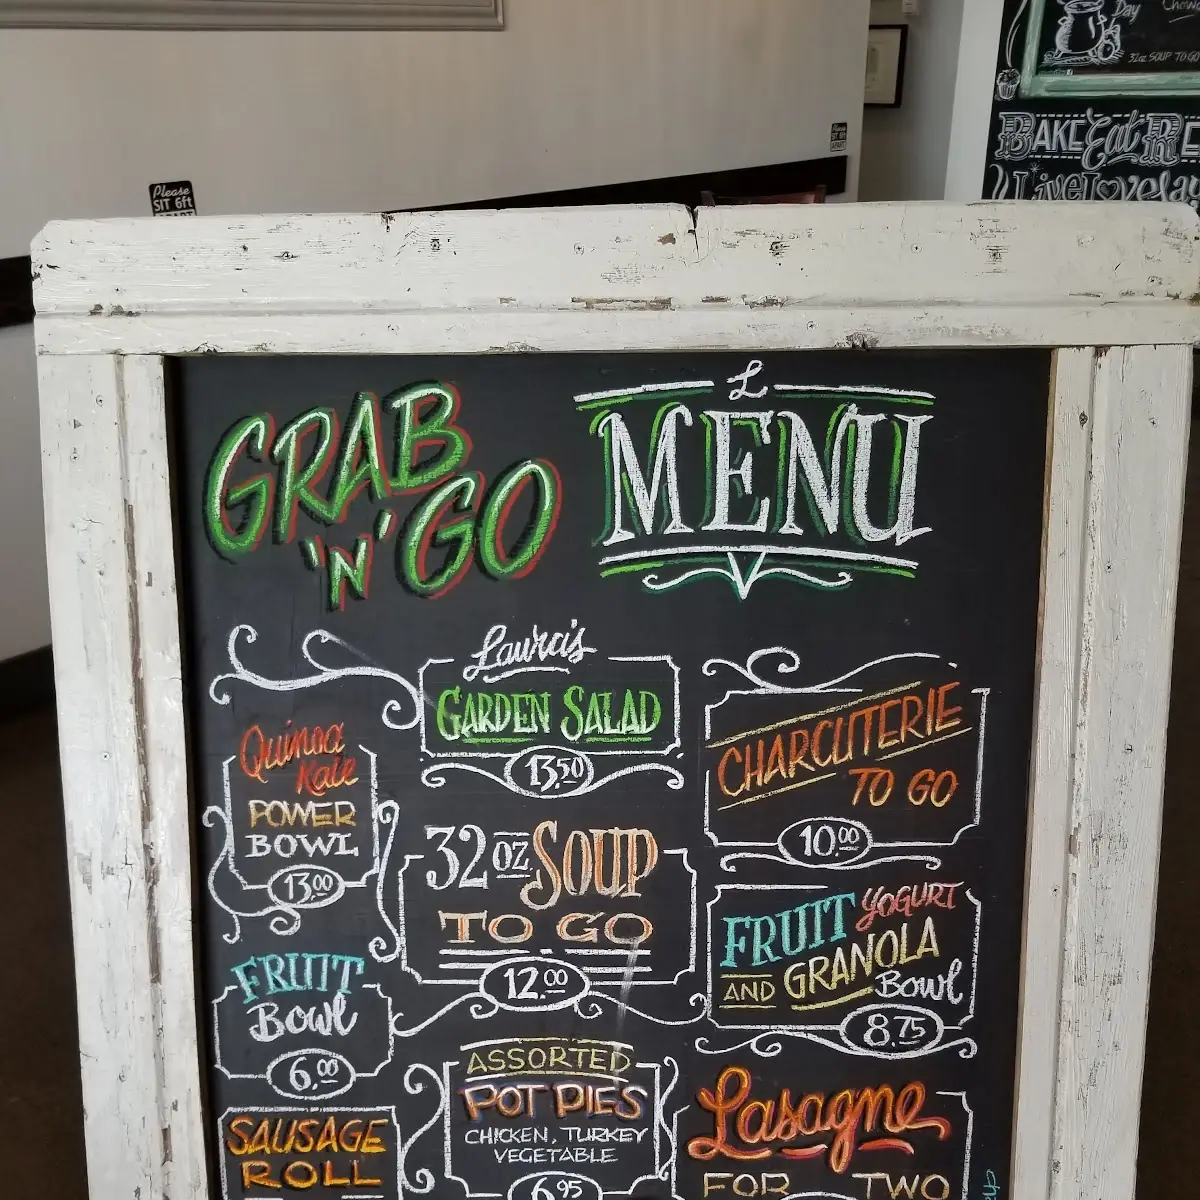 Day
32oz SOUP TO GO
BAKE Eat
Live Love
Please
SIT 6ft
APART
Please
SIT 6ft
APART
GRAB
'N' GO
MENU
Laura's
GARDEN SALAD
13.50
Quinoa
Kale
POWER
BOWL
13.00
CHARCUTERIE
TO GO
10.00
32 OZ SOUP
TO GO
12.00
FRUIT YOGURT
AND GRANOLA
Bowl
8.75
FRUIT
Bowl
6.00
ASSORTED
POT PIES
CHICKEN, TURKEY
VEGETABLE
6.95
SAUSAGE
ROLL
Lasagne
FOR TWO